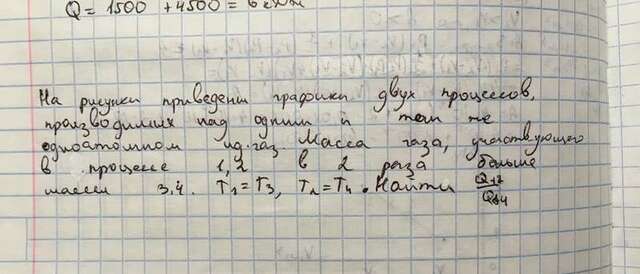 Q = 1500 + 4500 = 6 кДж
На рисунки приведены графики двух процессов,
производимих над одним и тем же
одноатомном ид.газ. Масса газа, участвующего
в процессе 1,2 в 2 раза больше
массы 3,4. T₁=T₃, T₂=T₄. Найти Q₁₂/Q₃₄